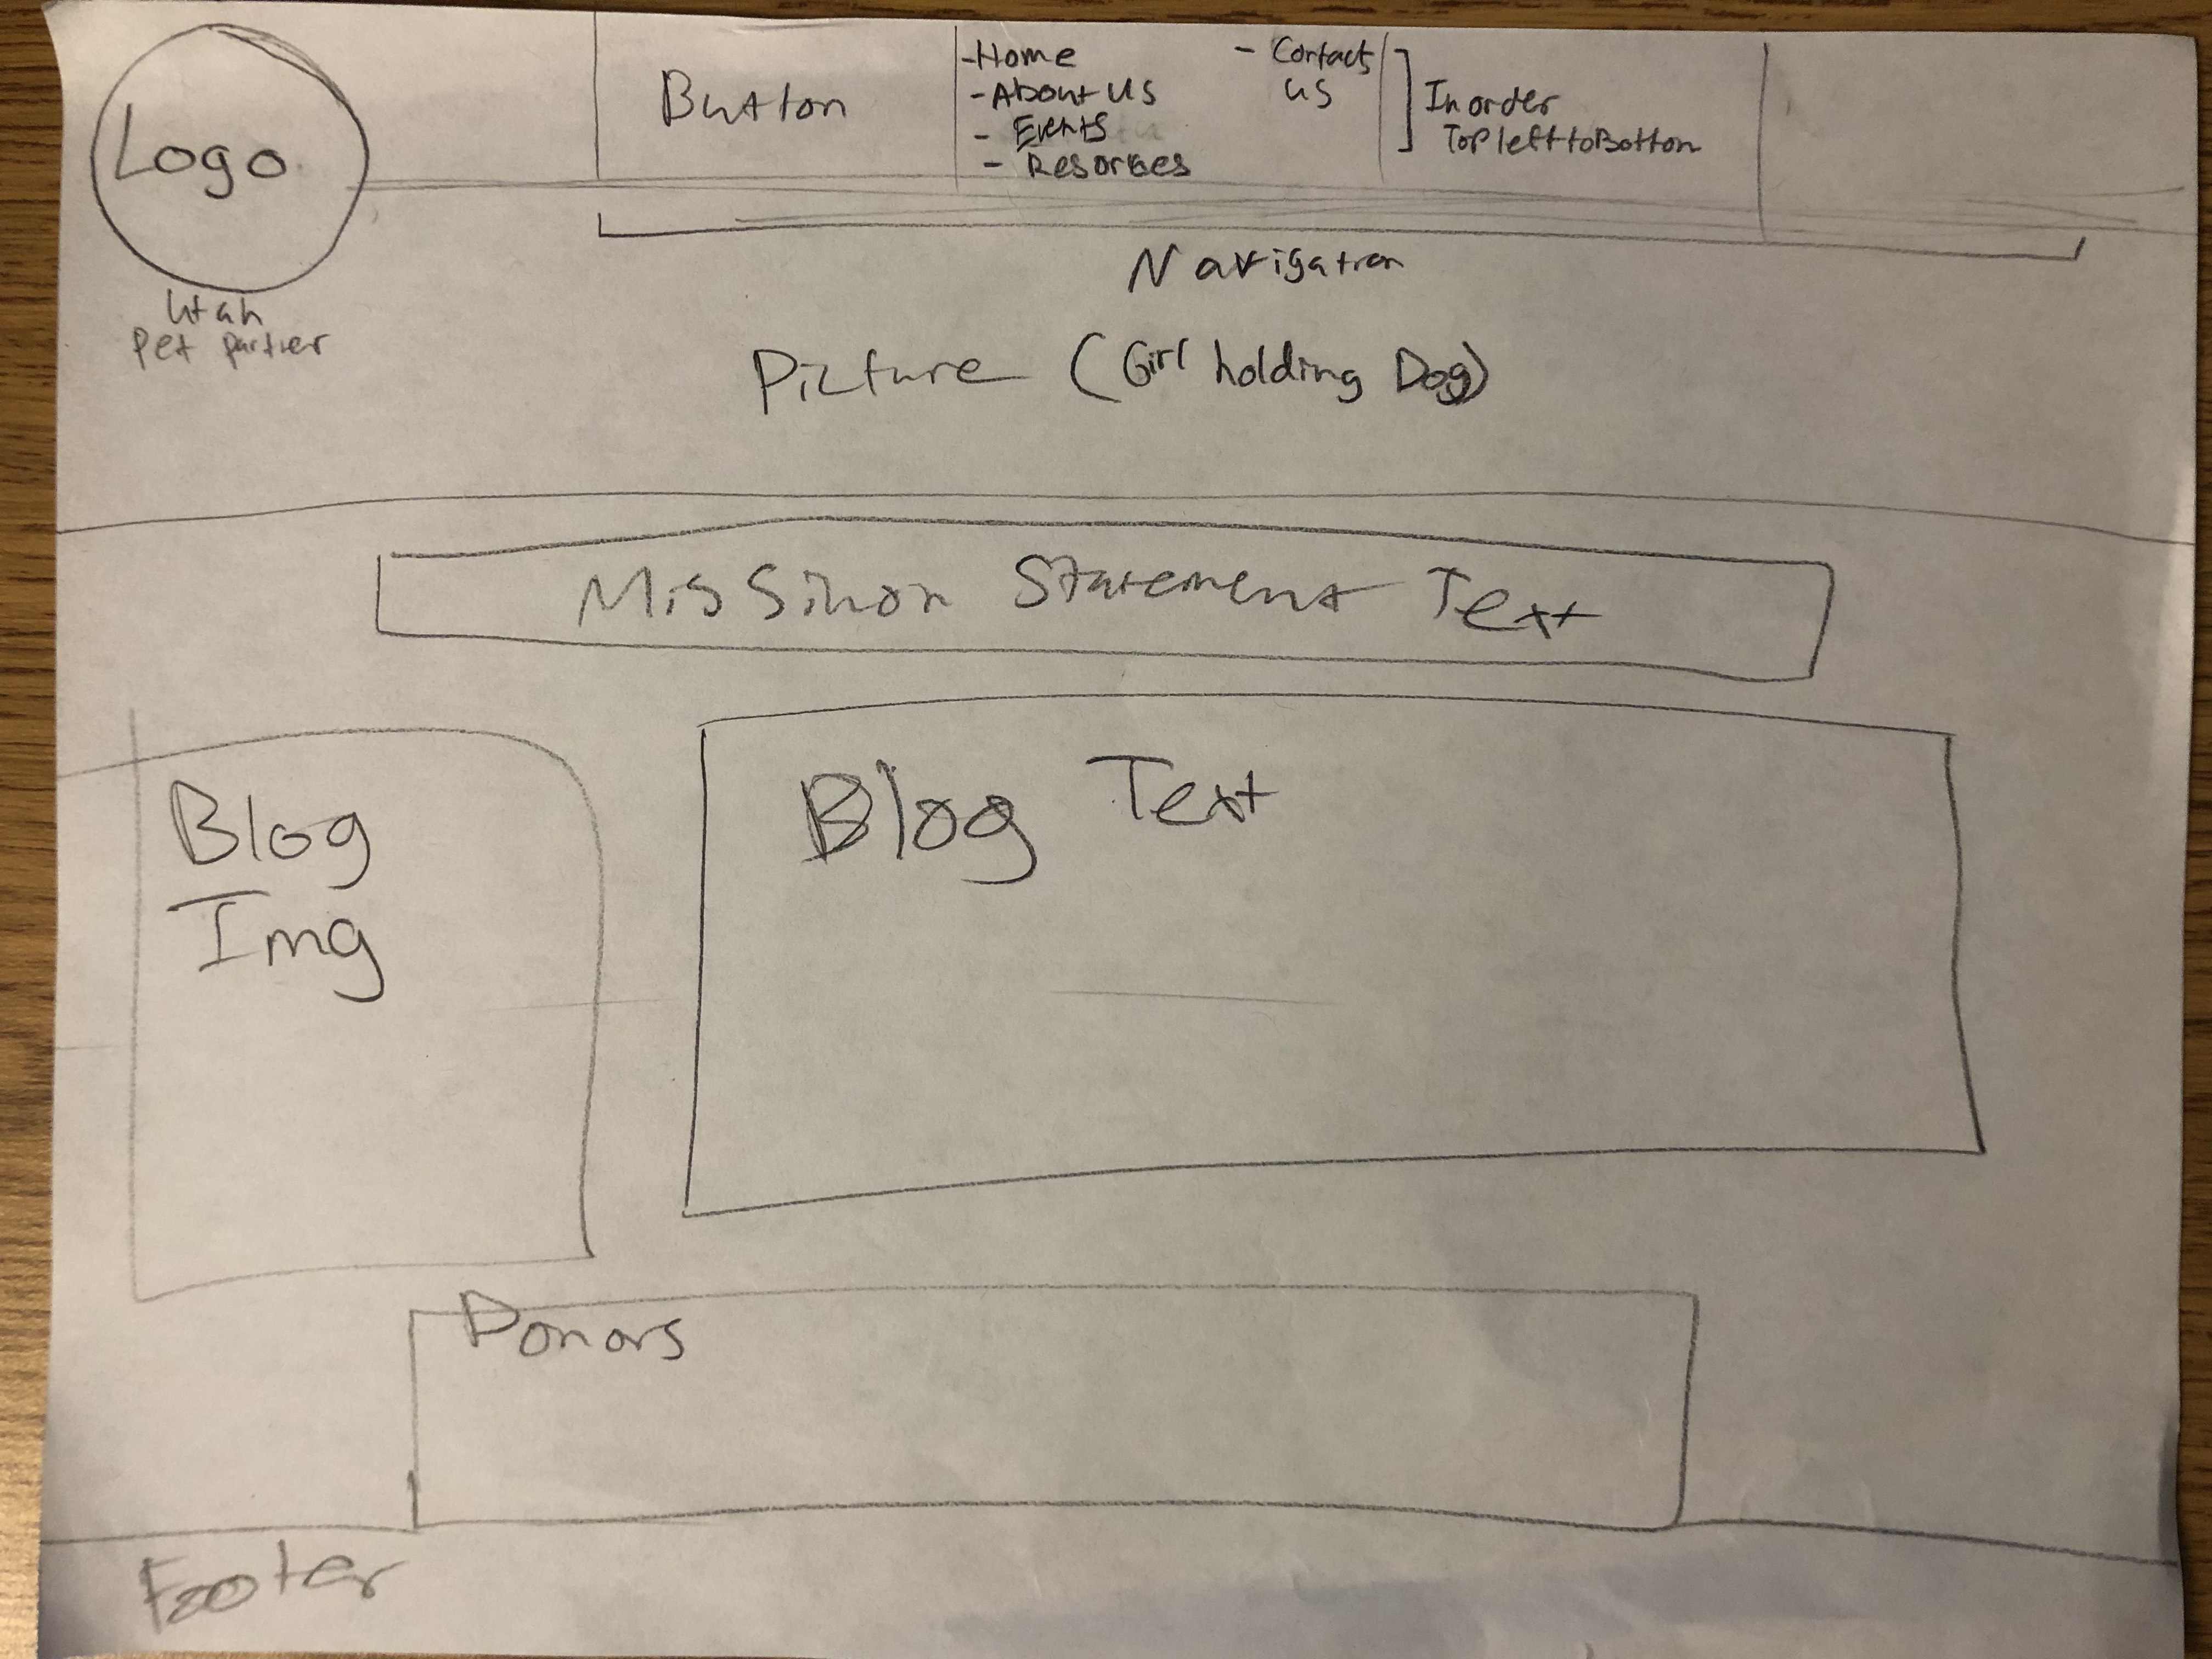 Logo
Utah
Pet partner
Button
-Home
-About us
- Events
- Resorces
- Contact
us
] In order
Top left to Bottom
Navigation
Picture (Girl holding Dog)
Missinon Statement Text
Blog
Img
Blog Text
Donors
Footer